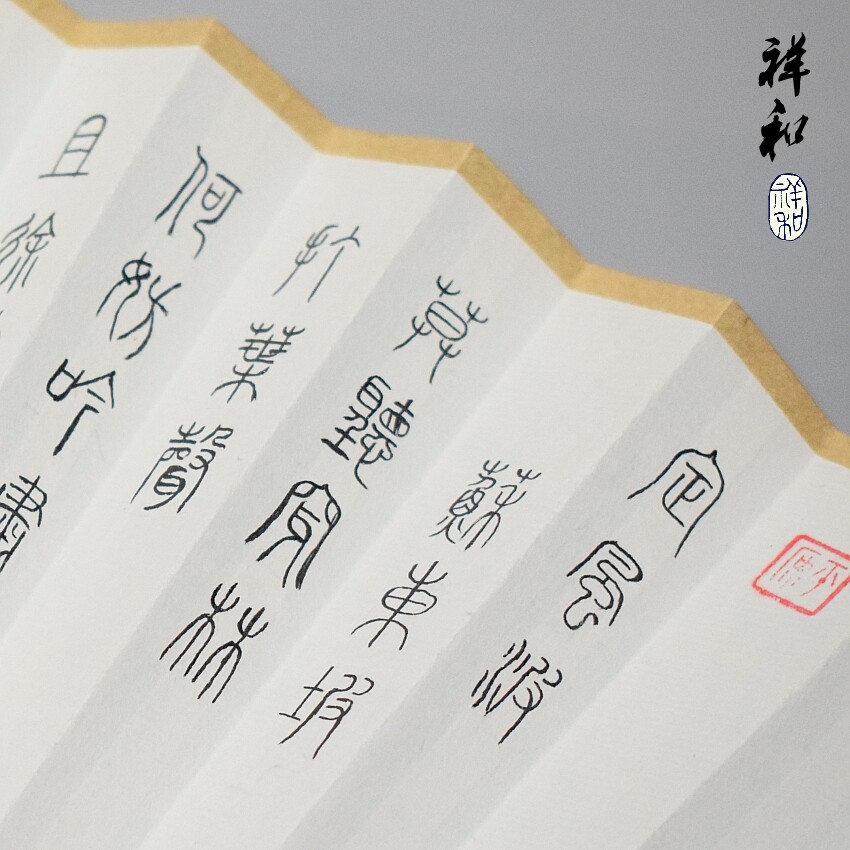 定風波
蘇東坡
莫聽穿林
打葉聲
何妨吟嘯
且徐
祥和
祥和